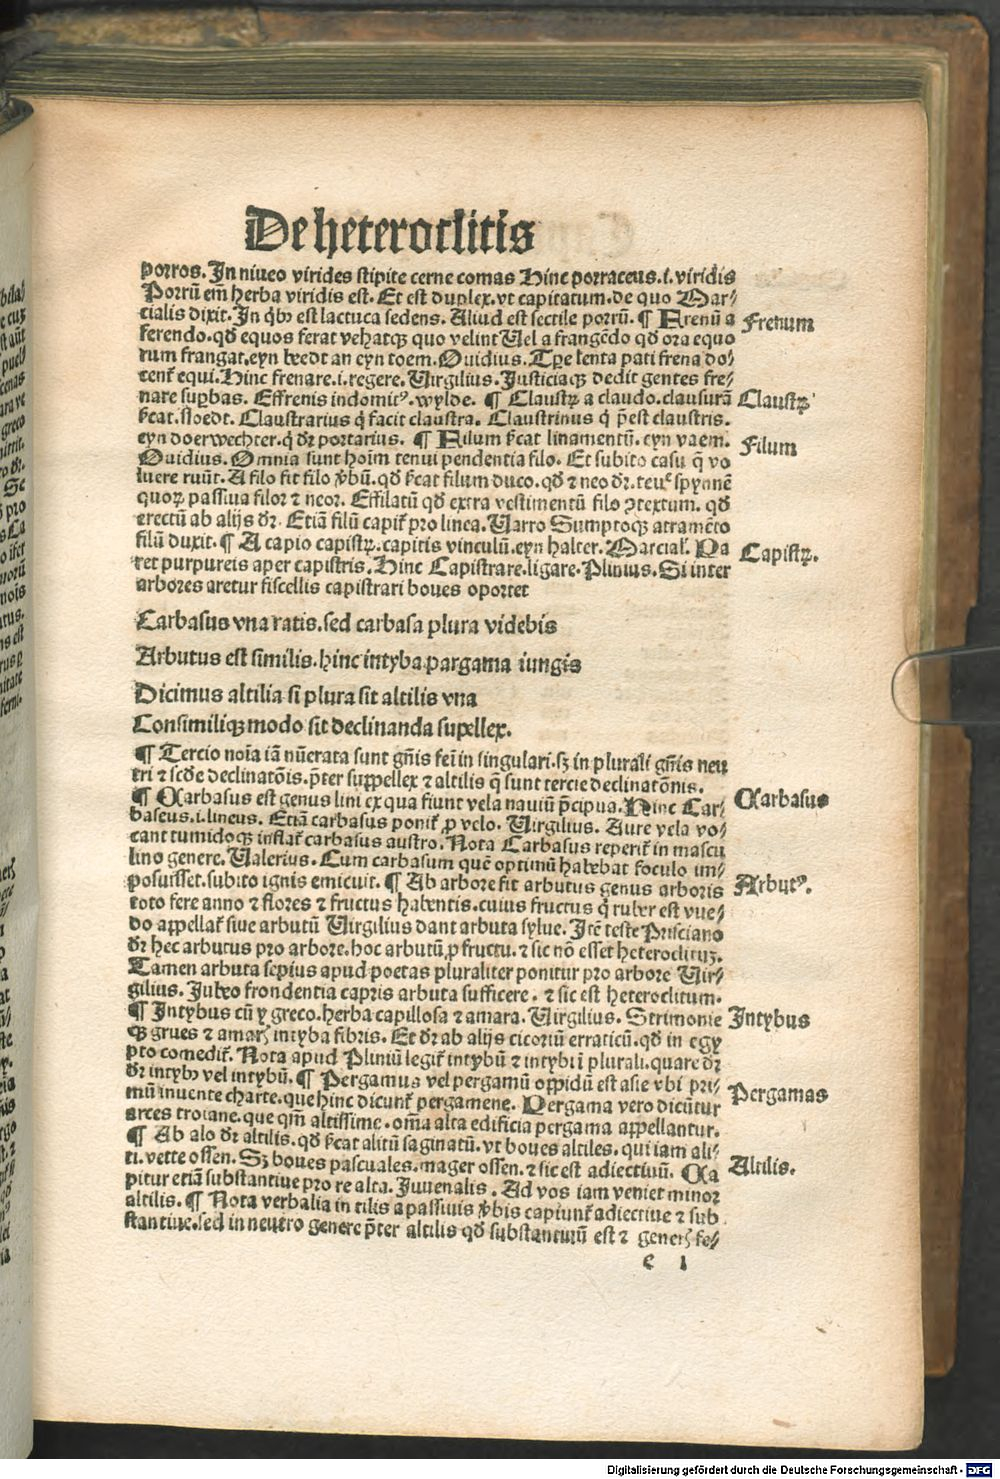 De heteroclitis
porros. In niueo virides stipite cerne comas Hinc porraceus.i. viridis
Porrū em̄ herba viridis est. Et est duplex. vt capitatum. de quo Mar⸗
cialis dixit. In qͥbꝰ est lactuca sedens. Aliud est sectile porrū. ¶ Frenū a
Frenum
ferendo. qđ equos ferat vehatqꝫ quo velint Vel a frangēdo qđ ora equo
rum frangat. eyn bredt an eyn toem. Ouidius. Tꝑe lenta pati frena do⸗
cent̄ equi. Hinc frenare.i. regere. Virgilius. Justiciaqꝫ dedit gentes fre⸗
nare supbas. Effrenis indomitꝰ. wylde. ¶ Claustꝝ a claudo. clausurā
Claustꝝ
ſcat. sloedt. Claustrarius q̇ facit claustra. Claustrinus q̇ p̄est claustris.
eyn doerwechter. q̇ dr̄ portarius. ¶ Filum ſcat linamentū. eyn vaem.
Filum
Ouidius. Omnia sunt hoīm tenui pendentia filo. Et subito casu q̄ va
luere ruūt. A filo fit filo ꝟbū. qđ ſcat filum duco. qđ ⁊ neo dr̄. spynnē
quoꝝ passiua filor ⁊ neor. Effilatū qđ extra vestimentū filo ꝯtextum. qđ
erectū ab alijs dr̄. Etiā filū capit̄ pro linea. Varro Sumptoqꝫ atramēto
filū duxit. ¶ A capio capistꝝ. capitis vinculū. eyn halter. Marcial. Pa
Capistꝝ.
ret purpureis aper capistris. Hinc Capistrare. ligare. Plinius. Si inter
arbores aretur fiscellis capistrari boues oportet
Carbasus vna ratis. sed carbasa plura videbis
Arbutus est similis. hinc intyba pargama iungis
Dicimus altilia si plura sit altilis vna
Consimiliqꝫ modo sit declinanda supellex.
¶ Tercio noīa iā nūerata sunt gn̄is fei in singulari. sꝫ in plurali gn̄is neu
tri ⁊ scđe declinatōis. p̄ter suppellex ⁊ altilis q̄ sunt tercie declinatōnis.
¶ Carbasus est genus lini ex qua fiunt vela nauiū p̄cipua. Hinc Car⸗
Carbasus
baseus.i. lineus. Etiā carbasus ponit̄ ꝓ velo. Virgilius. Aure vela vo⸗
cant tumidoqꝫ inflat̄ carbasus austro. Nota Carbasus reperit̄ in mascu
lino genere. Valerius. Cum carbasum quē optimū habebat foculo im⸗
posuisset. subito ignis emicuit. ¶ Ab arbore fit arbutus genus arboris
Arbutꝰ.
toto fere anno ⁊ flores ⁊ fructus habentis. cuius fructus q̇ ruber est vue⸗
do appellat̄ siue arbutū Virgilius dant arbuta sylue. Itē teste Prisciano
dr̄ hec arbutus pro arbore. hoc arbutū ꝓ fructu. ⁊ sic nō esset heteroclituꝫ.
Tamen arbuta sepius apud poetas pluraliter ponitur pro arbore Vir⸗
gilius. Jubeo frondentia capris arbuta sufficere. ⁊ sic est heteroclitum.
¶ Intybus cū y greco. herba capillosa ⁊ amara. Virgilius. Strimonie
Intybus
qꝫ grues ⁊ amarꝭ intyba fibris. Et dr̄ ab alijs cicoriū erraticū. qđ in egy
pto comedit̄. Nota apud Pliniū legit̄ intybū ⁊ intybi ī plurali. quare dr̄
dr̄ intybꝰ vel intybū. ¶ Pergamus vel pergamū oppidū est asie vbi pri⸗
Pergamas
mū inuente charte. que hinc dicunt̄ pergamene. Pergama vero dicūtur
arces troiane. que qm̄ altissime. om̄a alta edificia pergama appellantur.
¶ Ab alo dr̄ altilis. qđ ſcat alitū saginatū. vt boues altiles. qui iam ali⸗
Altilis.
ti. vette ossen. Sꝫ boues pascuales. mager ossen. ⁊ sic est adiectiuū. Ca
pitur etiā substantiue pro re alta. Juuenalis. Ad vos iam veniet minor
altilis. ¶ Nota verbalia in tilis a passiuis ꝟbis capiunt̄ adiectiue ⁊ sub
stantiue. sed in neutro genere p̄ter altilis qđ substantiuū est ⁊ generꝭ fe⸗
e 1
Digitalisierung gefördert durch die Deutsche Forschungsgemeinschaft - DFG